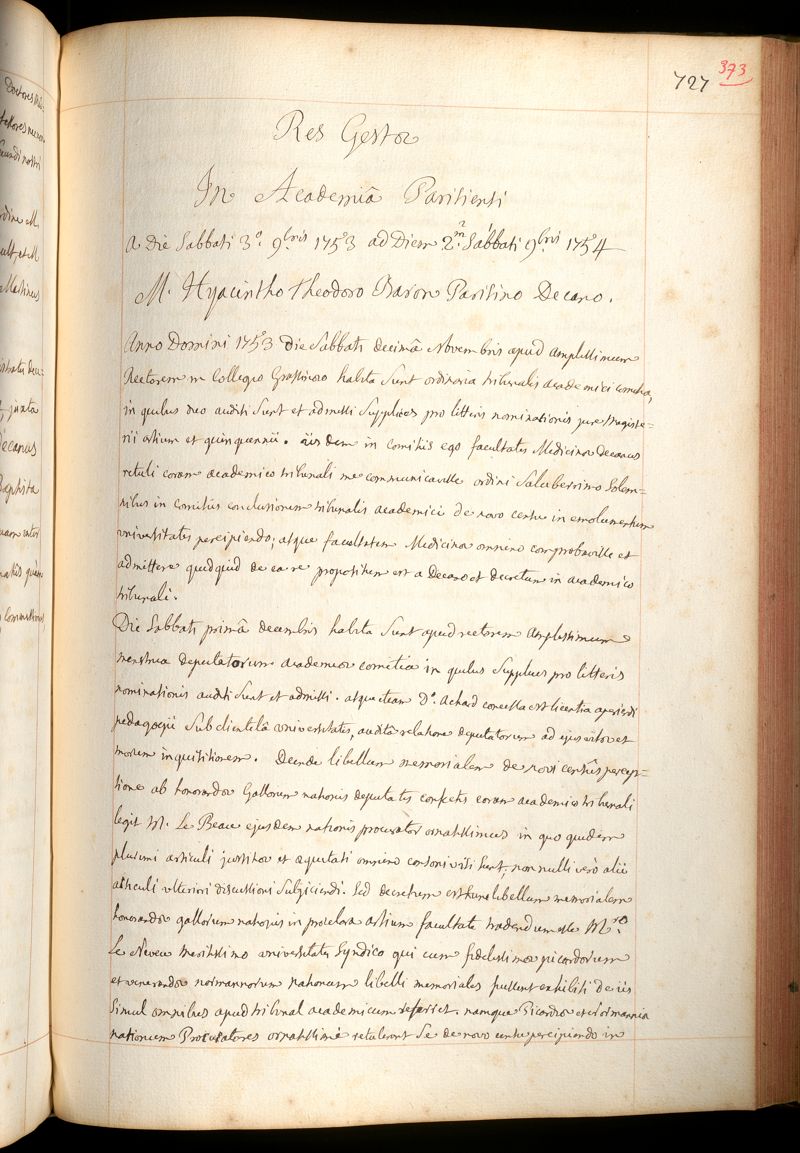 727
373
Res Gestæ
In Academiâ Parisiensi
A die Sabbati 3.ª 9.bris 1753 ad Diem 2.m Sabbati 9.bris 1754
M. Hyacintho Theodoro Baron Parisino Decano.
Anno Domini 1753 die Sabbati decimâ Novembris apud amplissimum
Rectorem in Collegio Grassinæo habita sunt ordinaria tribunalis academici comitia,
in quibus duo auditi sunt et admissi supplices pro litteris nominationis jure Magiste=
rii artium et quinquennii. iisdem in comitiis ego facultatis Medicinæ Decanus
retuli coram academico tribunali me communicavisse ordini Saluberrimo Solem=
nibus in comitiis conclusionem tribunalis academici de novo censu in emolumentum
universitatis percipiendo; atque facultatem Medicinæ omnino comprobavisse et
admittere quidquid de ea re propositum est a Decano et decretum in academico
tribunali.
Die Sabbati primâ decembris habita sunt apud rectorem amplissimum
menstrua deputatorum academiæ comitia in quibus supplices pro litteris
nominationis auditi sunt et admissi. atque etiam D.º Achard concessa est licentia aperiendi
pedagogii sub clientelâ universitatis, auditâ relatione deputatorum ad ejus vitæ et
morum inquisitionem. Deinde libellum memorialem de novi censûs percep=
tione ab honorandæ Gallorum nationis deputatis confectis coram academico tribunali
legit M. Le Beau ejusdem nationis procurator ornatissimus in quo quidem
plurimi articuli justitiæ et æquitati omnino consoni visi sunt, nonnulli verò alii
articuli ulteriori discussioni subjiciendi. Sed decretum est hunc libellum memorialem
honorandæ gallorum nationis in præclara artium facultate tradendum esse M.ro
Le Neveu meritissimo universitatis Syndico qui cum fidelissimæ picardorum
et venerandæ normannorum nationum libelli memoriales fuerint exhibiti de iis
simul omnibus apud tribunal academicum referret. namque Picardiæ et Normanniæ
nationum Procuratores ornatissimi retulerunt se de novo censu percipiendo in